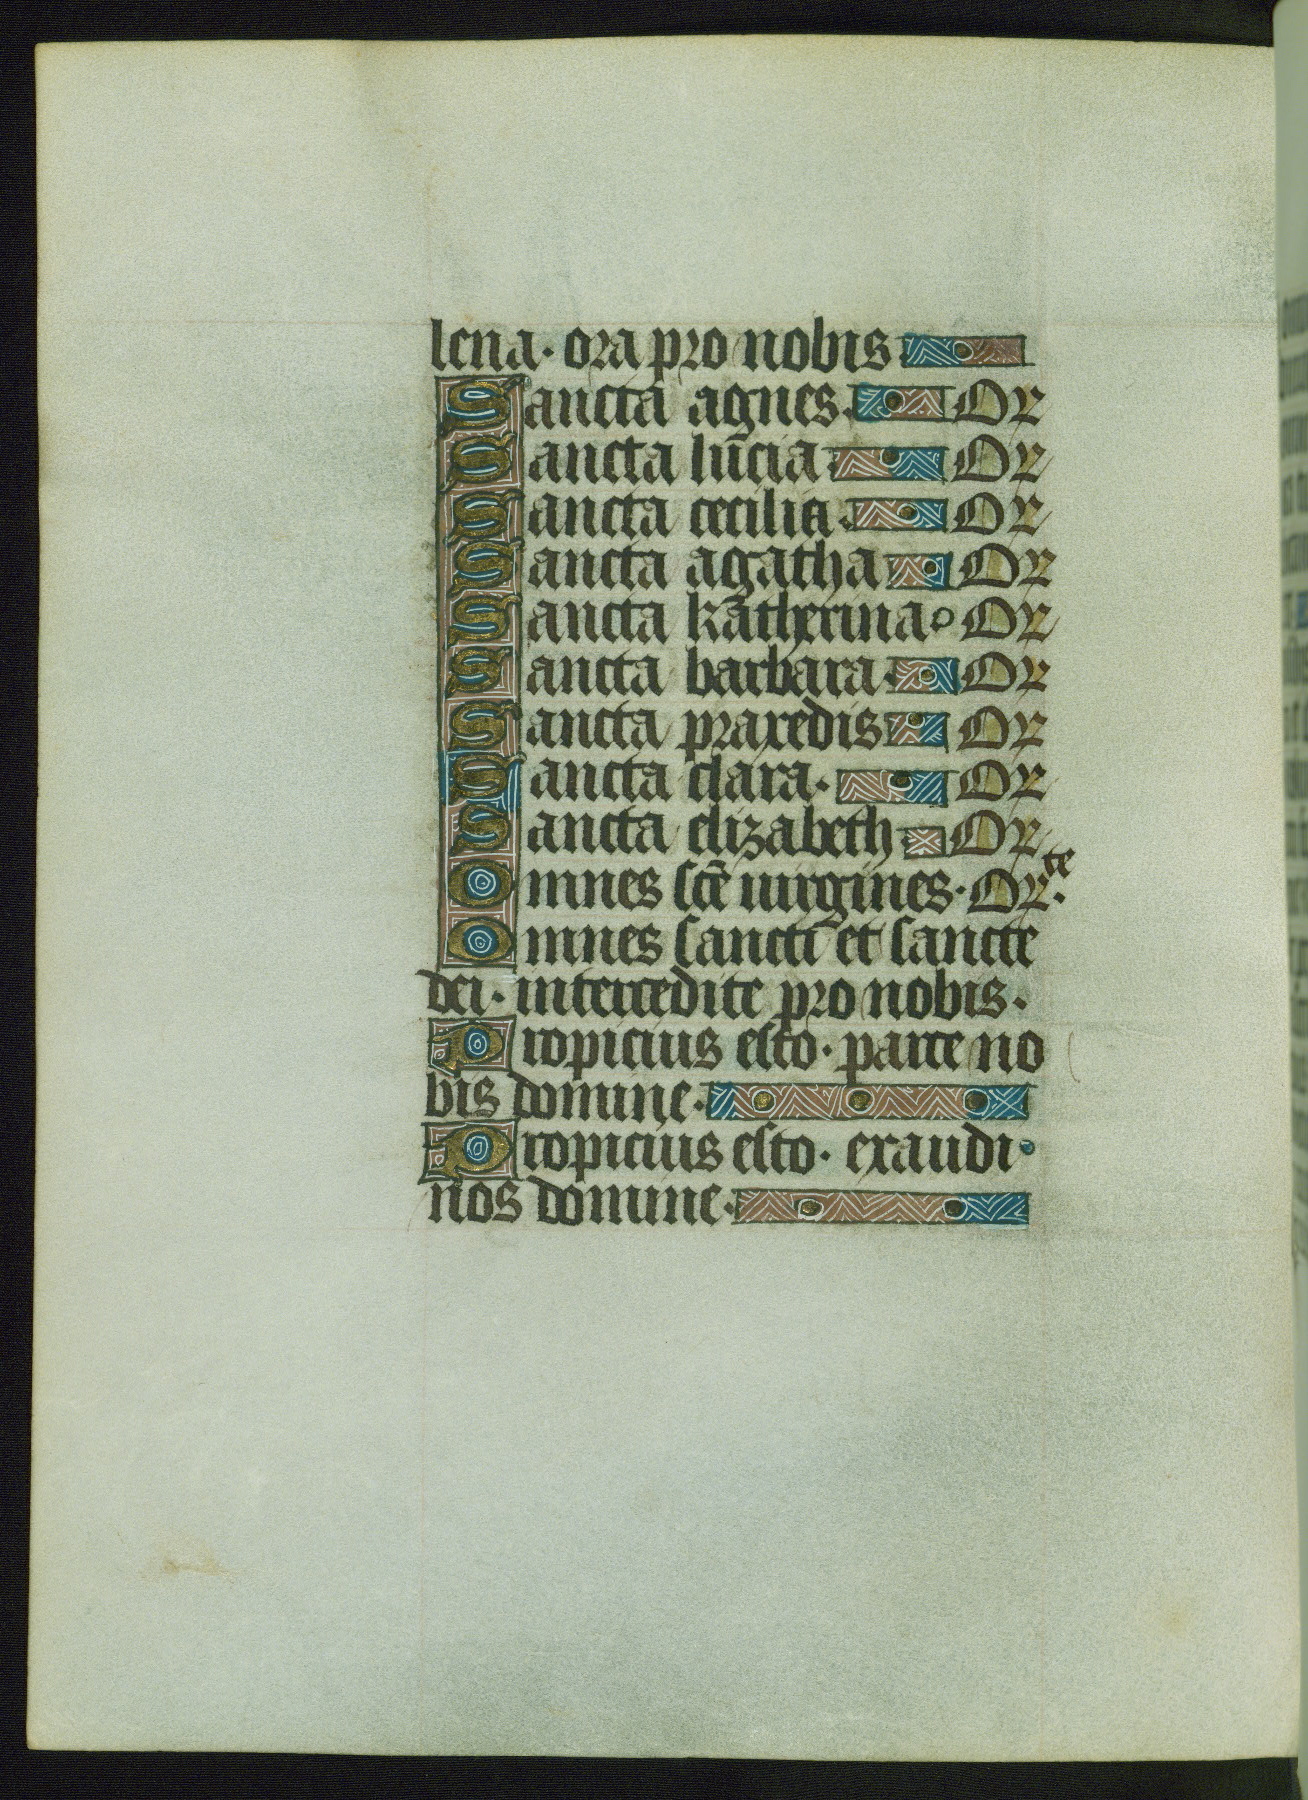 lena· ora pro nobis
Sancta agnes. Or
Sancta lucia Or
Sancta cecilia. Or
Sancta agatha Or
Sancta katherina Or
Sancta barbara. Or
Sancta praxedis Or
Sancta clara. Or
Sancta elizabeth Or
Omnes scē uirgines. Orte.
Omnes sancti et sancte
dei. intercedite pro nobis.
Propicius esto. parce no
bis domine.
Propicius esto. exaudi
nos domine.